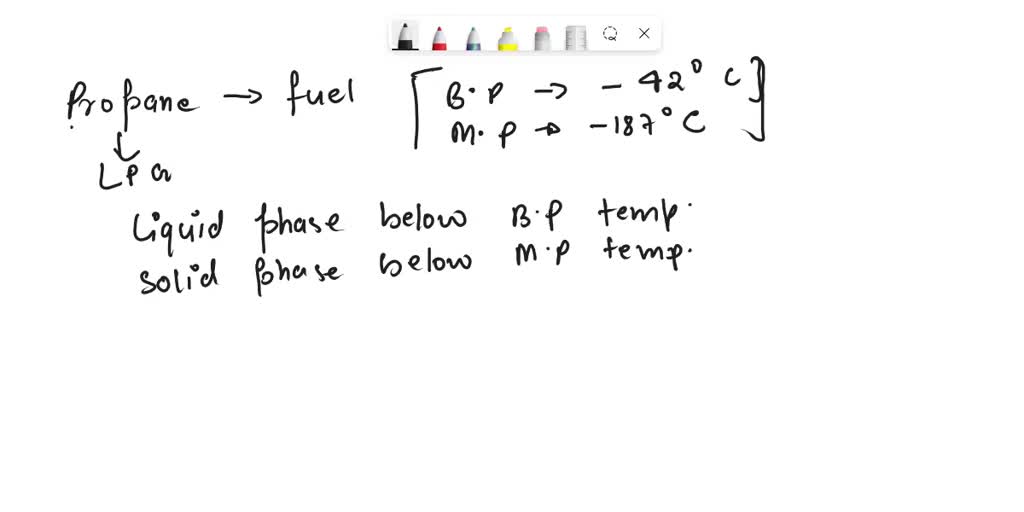 Propane → fuel [B.P → -42° C
M.P → -187° C]
↓
LPG
Liquid phase below B.P temp.
solid phase below M.P temp.